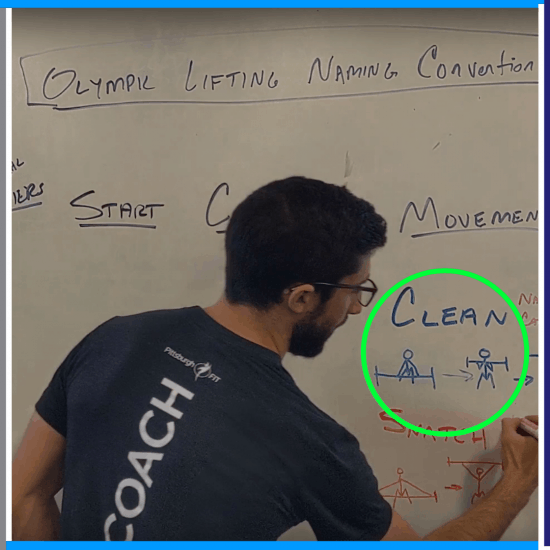 OLYMPIC LIFTING NAMING CONVENTION
START
MOVEMEN
CLEAN
SNATCH
Pittsburgh FIT
COACH